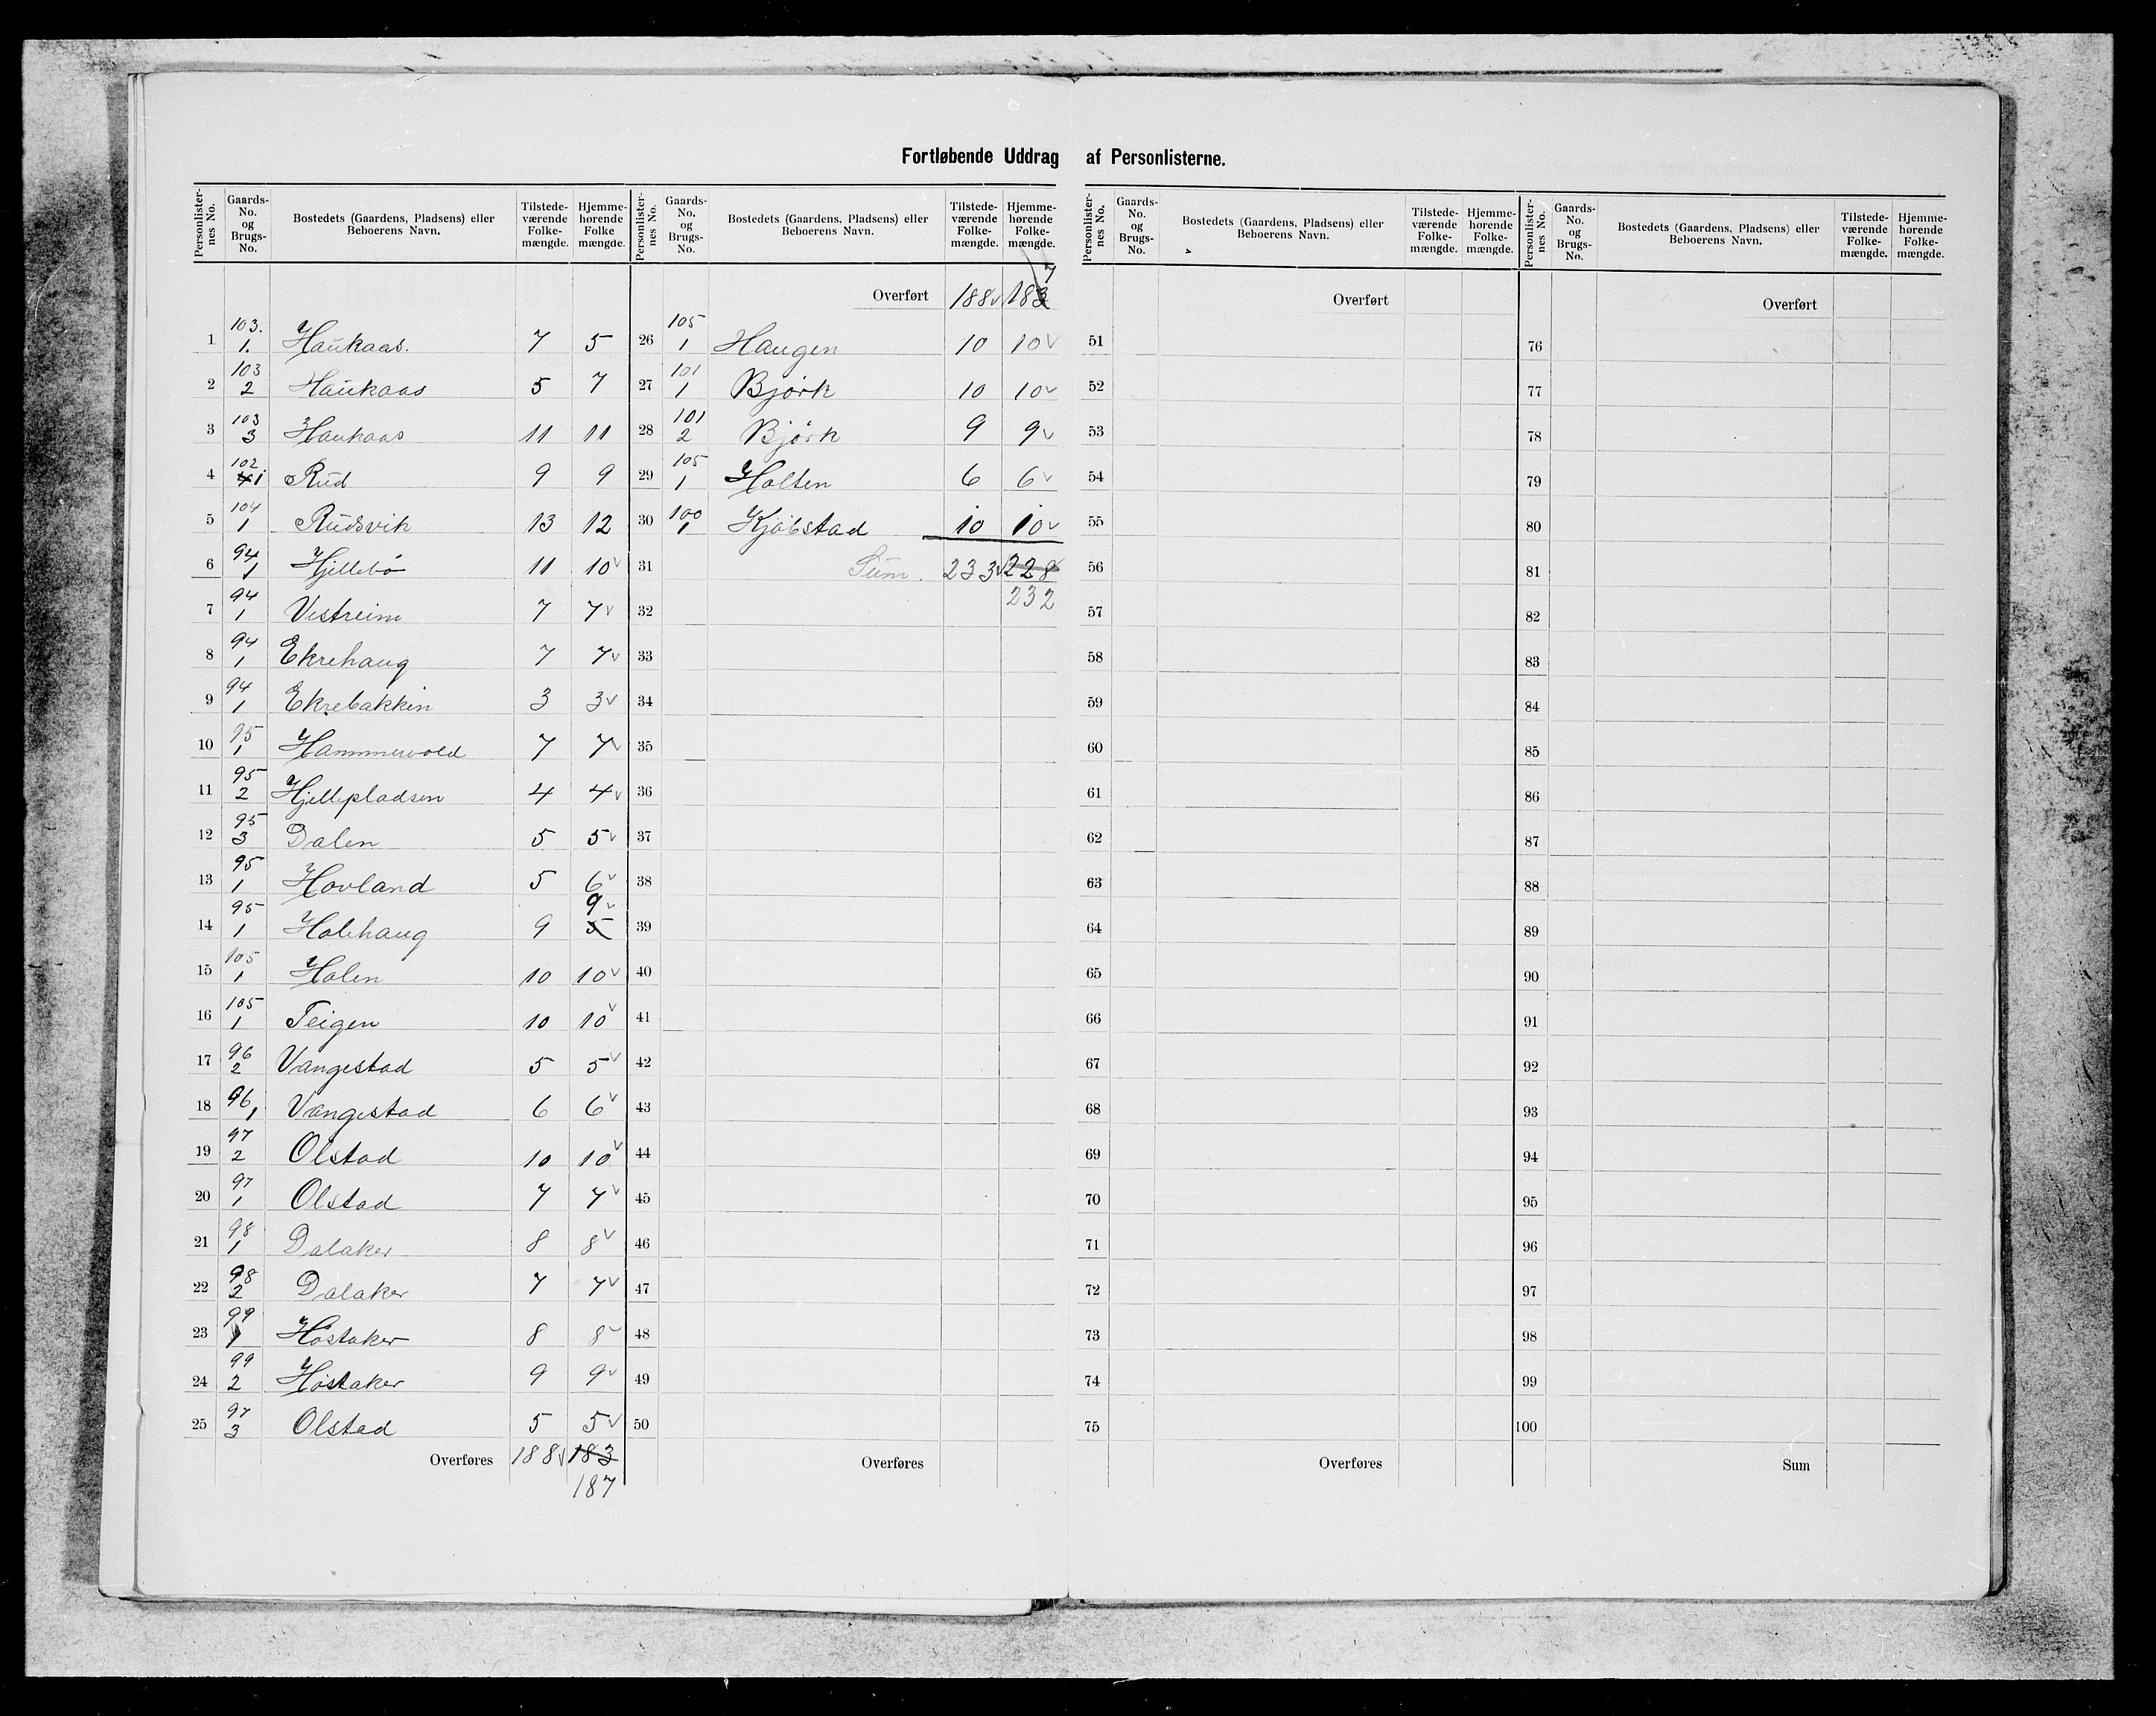 Fortløbende Uddrag af Personlisterne.
Personlisternes No. Gaards-No. og Brugs-No. Bostedets (Gaardens, Pladsens) eller Beboerens Navn. Tilstedeværende Folkemængde. Hjemmehørende Folke mængde.
1 103. 1. Haukaas. 7 5
2 103 2 Haukaas 5 7
3 103 3 Haukaas 11 11
4 102 4 1 Rud 9 9
5 104 1 Rudsvik 13 12
6 94 1 Hjellebø 11 10 v
7 94 1 Vestreim 7 7 v
8 94 1 Ekrehaug 7 7 v
9 94 1 Ekrebakken 3 3 v
10 95 1 Hammervold 7 7 v
11 95 2 Hjellepladsen 4 4 v
12 95 3 Dalen 5 5 v
13 95 1 Hovland 5 6 v
14 95 1 Holehaug 9 5 9 v
15 105 1 Holen 10 10 v
16 105 1 Teigen 10 10 v
17 96 2 Vangestad 5 5 v
18 96 1 Vangestad 6 6 v
19 97 2 Olstad 10 10 v
20 97 1 Olstad 7 7 v
21 98 1 Dalaker 8 8 v
22 98 2 Dalaker 7 7 v
23 99 1 Høstaker 8 8 v
24 99 2 Høstaker 9 9 v
25 97 3 Olstad 5 5 v
Overføres 188 v 183
187
Personlisternes No. Gaards-No. og Brugs-No. Bostedets (Gaardens, Pladsens) eller Beboerens Navn. Tilstedeværende Folkemængde. Hjemmehørende Folkemængde.
Overført 188 v 183 7
26 105 1 Haugen 10 10 v
27 101 1 Bjørk 10 10 v
28 101 2 Bjørk 9 9 v
29 105 1 Holten 6 6 v
30 100 1 Kjøbstad 10 10 v
31 Sum. 233 v 228
32 232
33
34
35
36
37
38
39
40
41
42
43
44
45
46
47
48
49
50
Overføres
Personlisternes No. Gaards-No. og Brugs-No. Bostedets (Gaardens, Pladsens) eller Beboerens Navn. Tilstedeværende Folkemængde. Hjemmehørende Folkemængde.
Overført
51
52
53
54
55
56
57
58
59
60
61
62
63
64
65
66
67
68
69
70
71
72
73
74
75
Overføres
Personlisternes No. Gaards-No. og Brugs-No. Bostedets (Gaardens, Pladsens) eller Beboerens Navn. Tilstedeværende Folkemængde. Hjemmehørende Folkemængde.
Overført
76
77
78
79
80
81
82
83
84
85
86
87
88
89
90
91
92
93
94
95
96
97
98
99
100
Sum